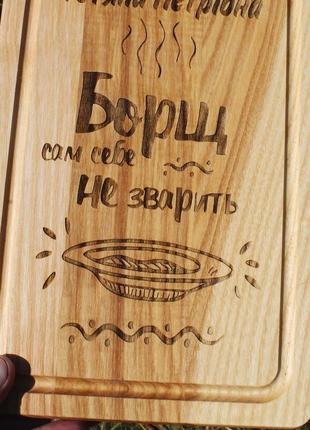 Петрівна
Борщ
сам себе
не зварить